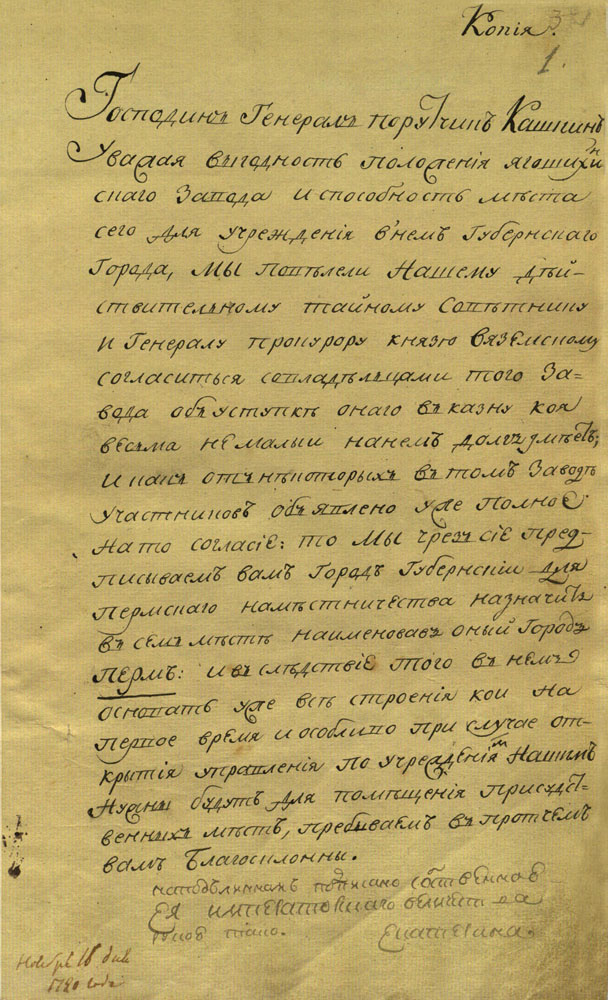 Копія.
1.
Господинъ Генералъ порутчикъ Кашкинъ
Уважая выгодность положенія ягошихин
скаго Завода и способность мѣста
сего для учрежденія в'немъ Губернскаго
Города, мы повѣлели Нашему дѣй-
ствительному тайному Совѣтнику
и Генералу прокурору князю Вяземскому
согласиться совладѣльцами того За=
вода объуступкѣ онаго въказну коя
весьма немалыи нанемъ долгъ имѣетъ;
И какъ отънѣкоторыхъ втомъ Заводѣ
участниковъ объявлено уже полное
Нато согласіе: то мы чрезъ сіе пред-
писываемъ вамъ Городъ Губернскіи для
пермскаго намѣстничества назначить
въ семъ мѣстѣ наименовавъ оный Городъ
Пермь: и въслѣдствіе того внемъ
основать уже всѣ строенія кои на
первое время и особливо при случае от-
крытія управленія по учрежденіямъ Нашимъ
Нужны будутъ для помѣщенія присудст-
венныхъ мѣстъ, пребываемъ впротчемъ
вамъ Благосклонны.
наподлинномъ подписано собственною
Ея императорскаго величества
рукою тако. Екатерина.
Ноября 16 дня
1780 года